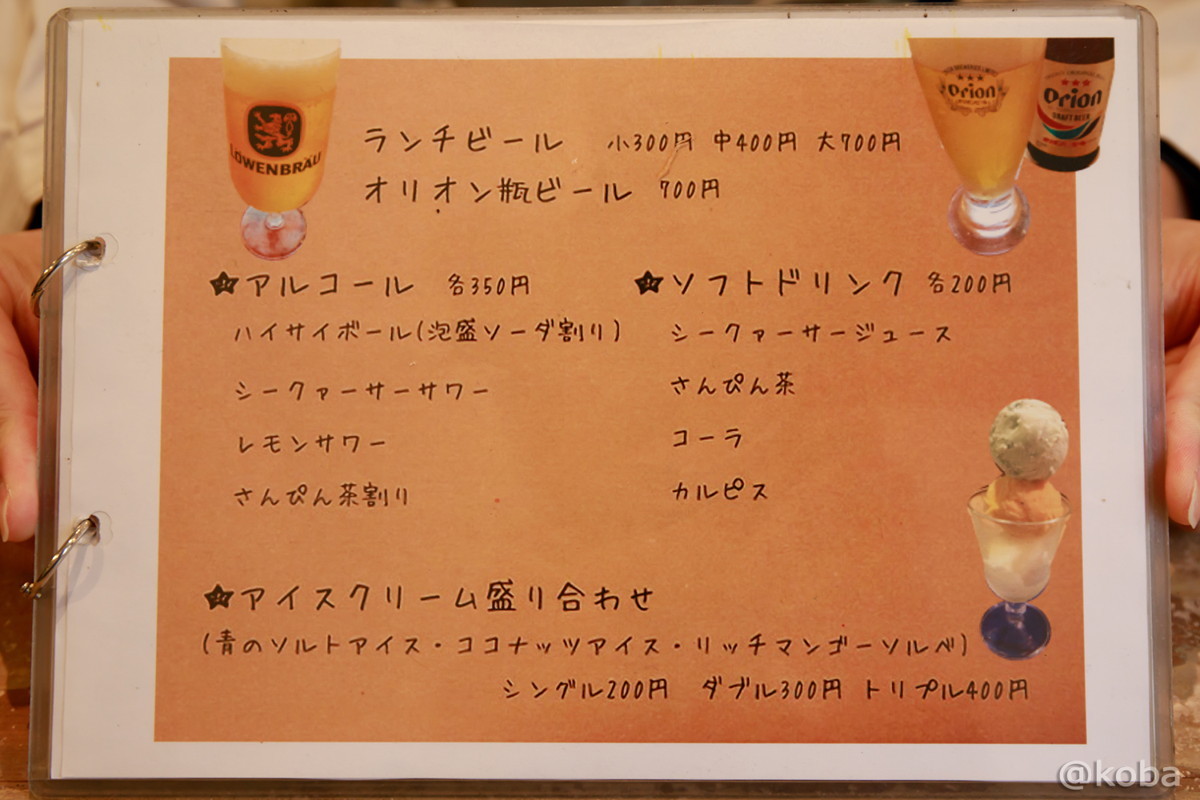 LÖWENBRÄU
Orion
Orion
DRAFT BEER
ランチビール 小300円 中400円 大700円
オリオン瓶ビール 700円
★アルコール 各350円
ハイサイボール(泡盛ソーダ割り)
シークァーサーサワー
レモンサワー
さんぴん茶割り
★ソフトドリンク 各200円
シークァーサージュース
さんぴん茶
コーラ
カルピス
★アイスクリーム盛り合わせ
(青のソルトアイス・ココナッツアイス・リッチマンゴーソルベ)
シングル200円 ダブル300円 トリプル400円
@koba